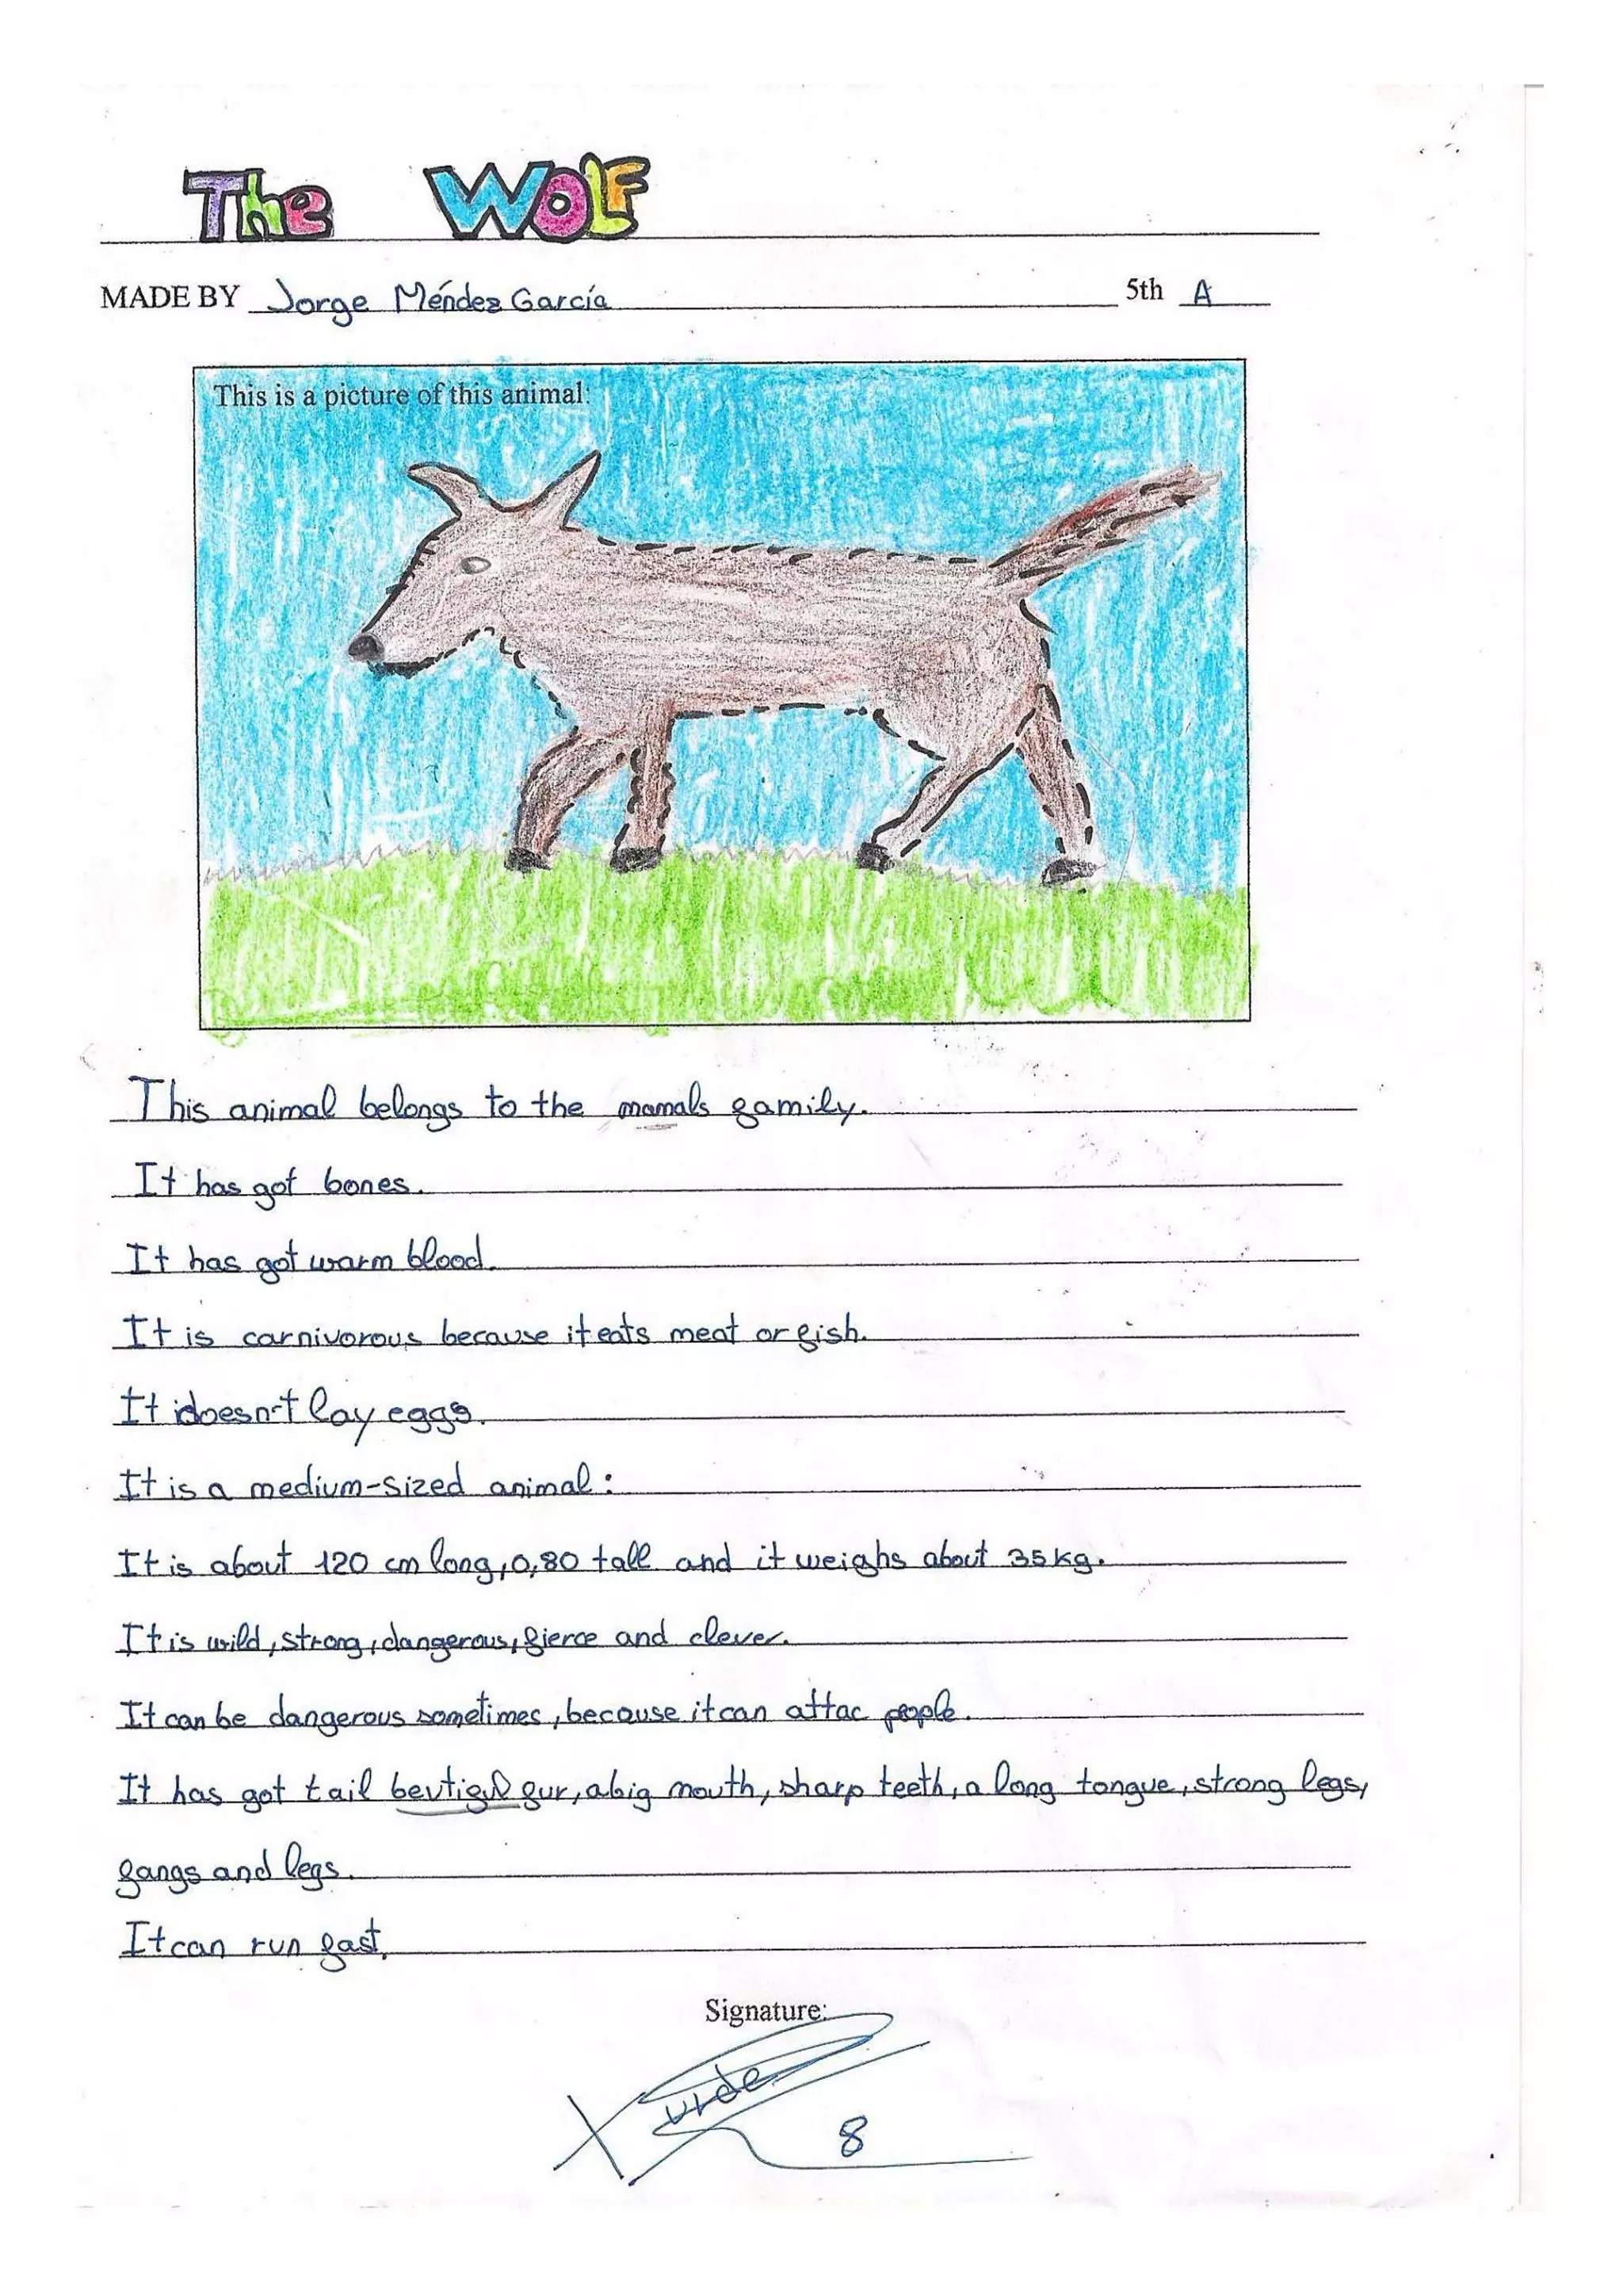 The WOLF
MADE BY Jorge Méndez García 5th A
This is a picture of this animal:
This animal belongs to the mamals family.
It has got bones.
It has got warm blood.
It is carnivorous because it eats meat or fish.
It doesn't lay eggs.
It is a medium-sized animal:
It is about 120 cm long, 0,80 tall and it weighs about 35 kg.
It is wild, strong, dangerous, fierce and clever.
It can be dangerous sometimes, because it can attac people.
It has got tail beutiful fur, a big mouth, sharp teeth, a long tongue, strong legs,
fangs and legs.
It can run fast.
Signature:
8